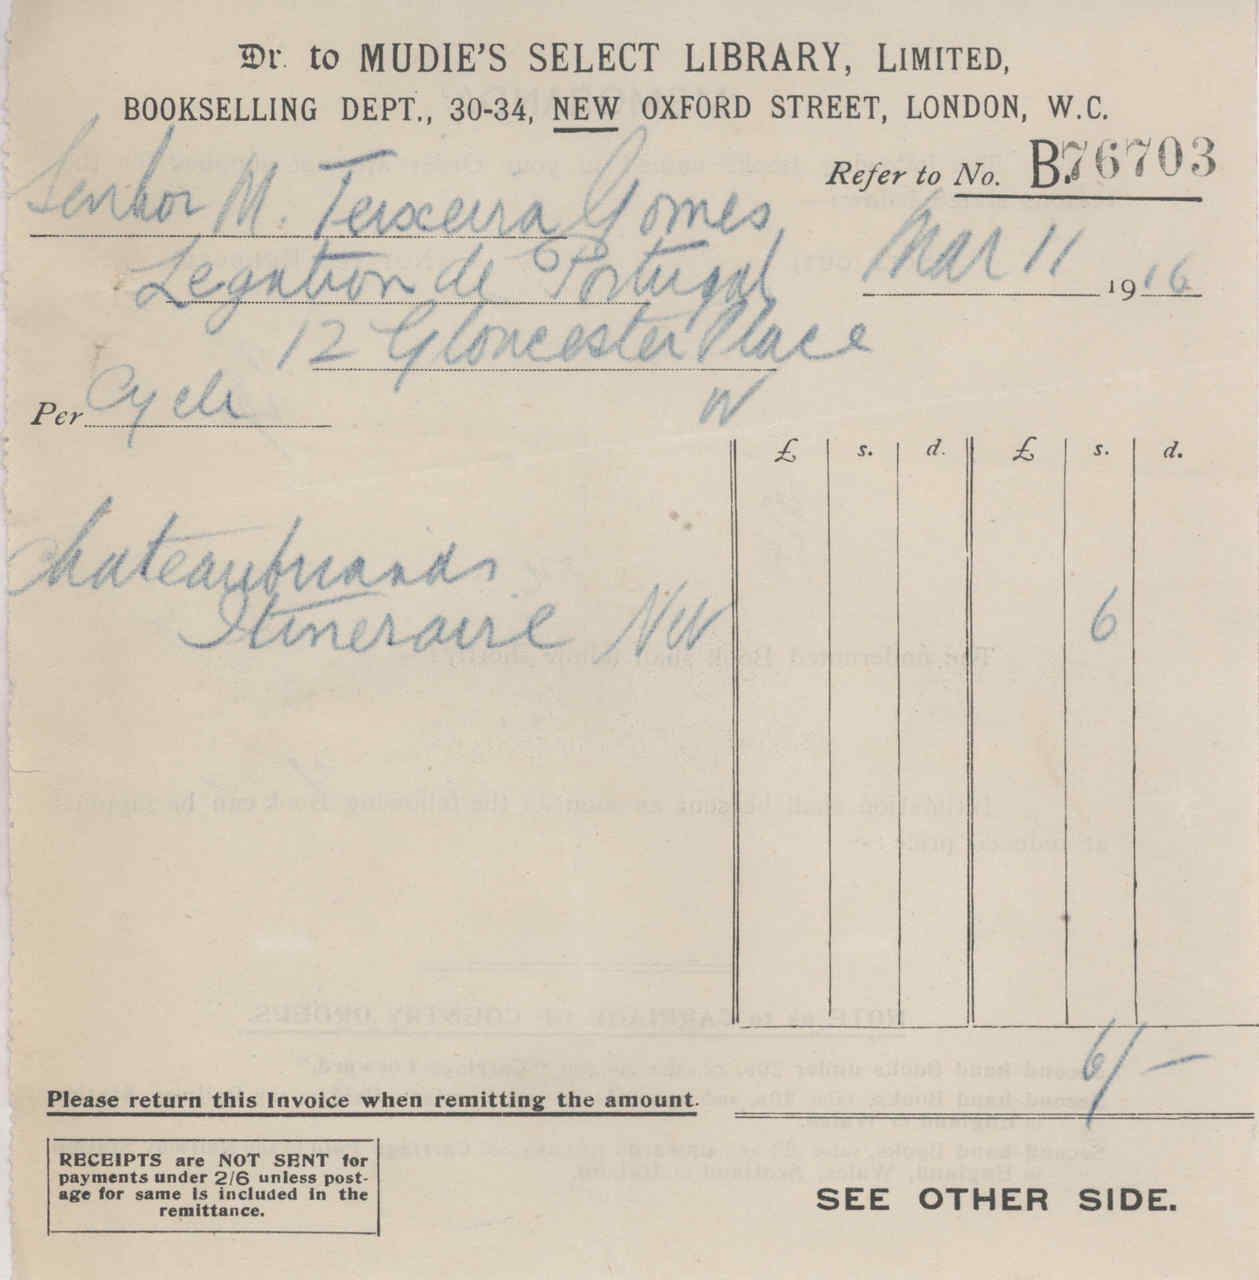 Dr. to MUDIE'S SELECT LIBRARY, LIMITED,
BOOKSELLING DEPT., 30-34, NEW OXFORD STREET, LONDON, W.C.
Refer to No. B.76703
Senhor M. Teixeira Gomes,
Legation de Portugal
Mar 11 1916
12 Gloucester Place
W
Per Cycle
£ s. d. £ s. d.
Chateaubriands
Itineraire New 6
6/-
Please return this Invoice when remitting the amount.
RECEIPTS are NOT SENT for
payments under 2/6 unless post-
age for same is included in the
remittance.
SEE OTHER SIDE.